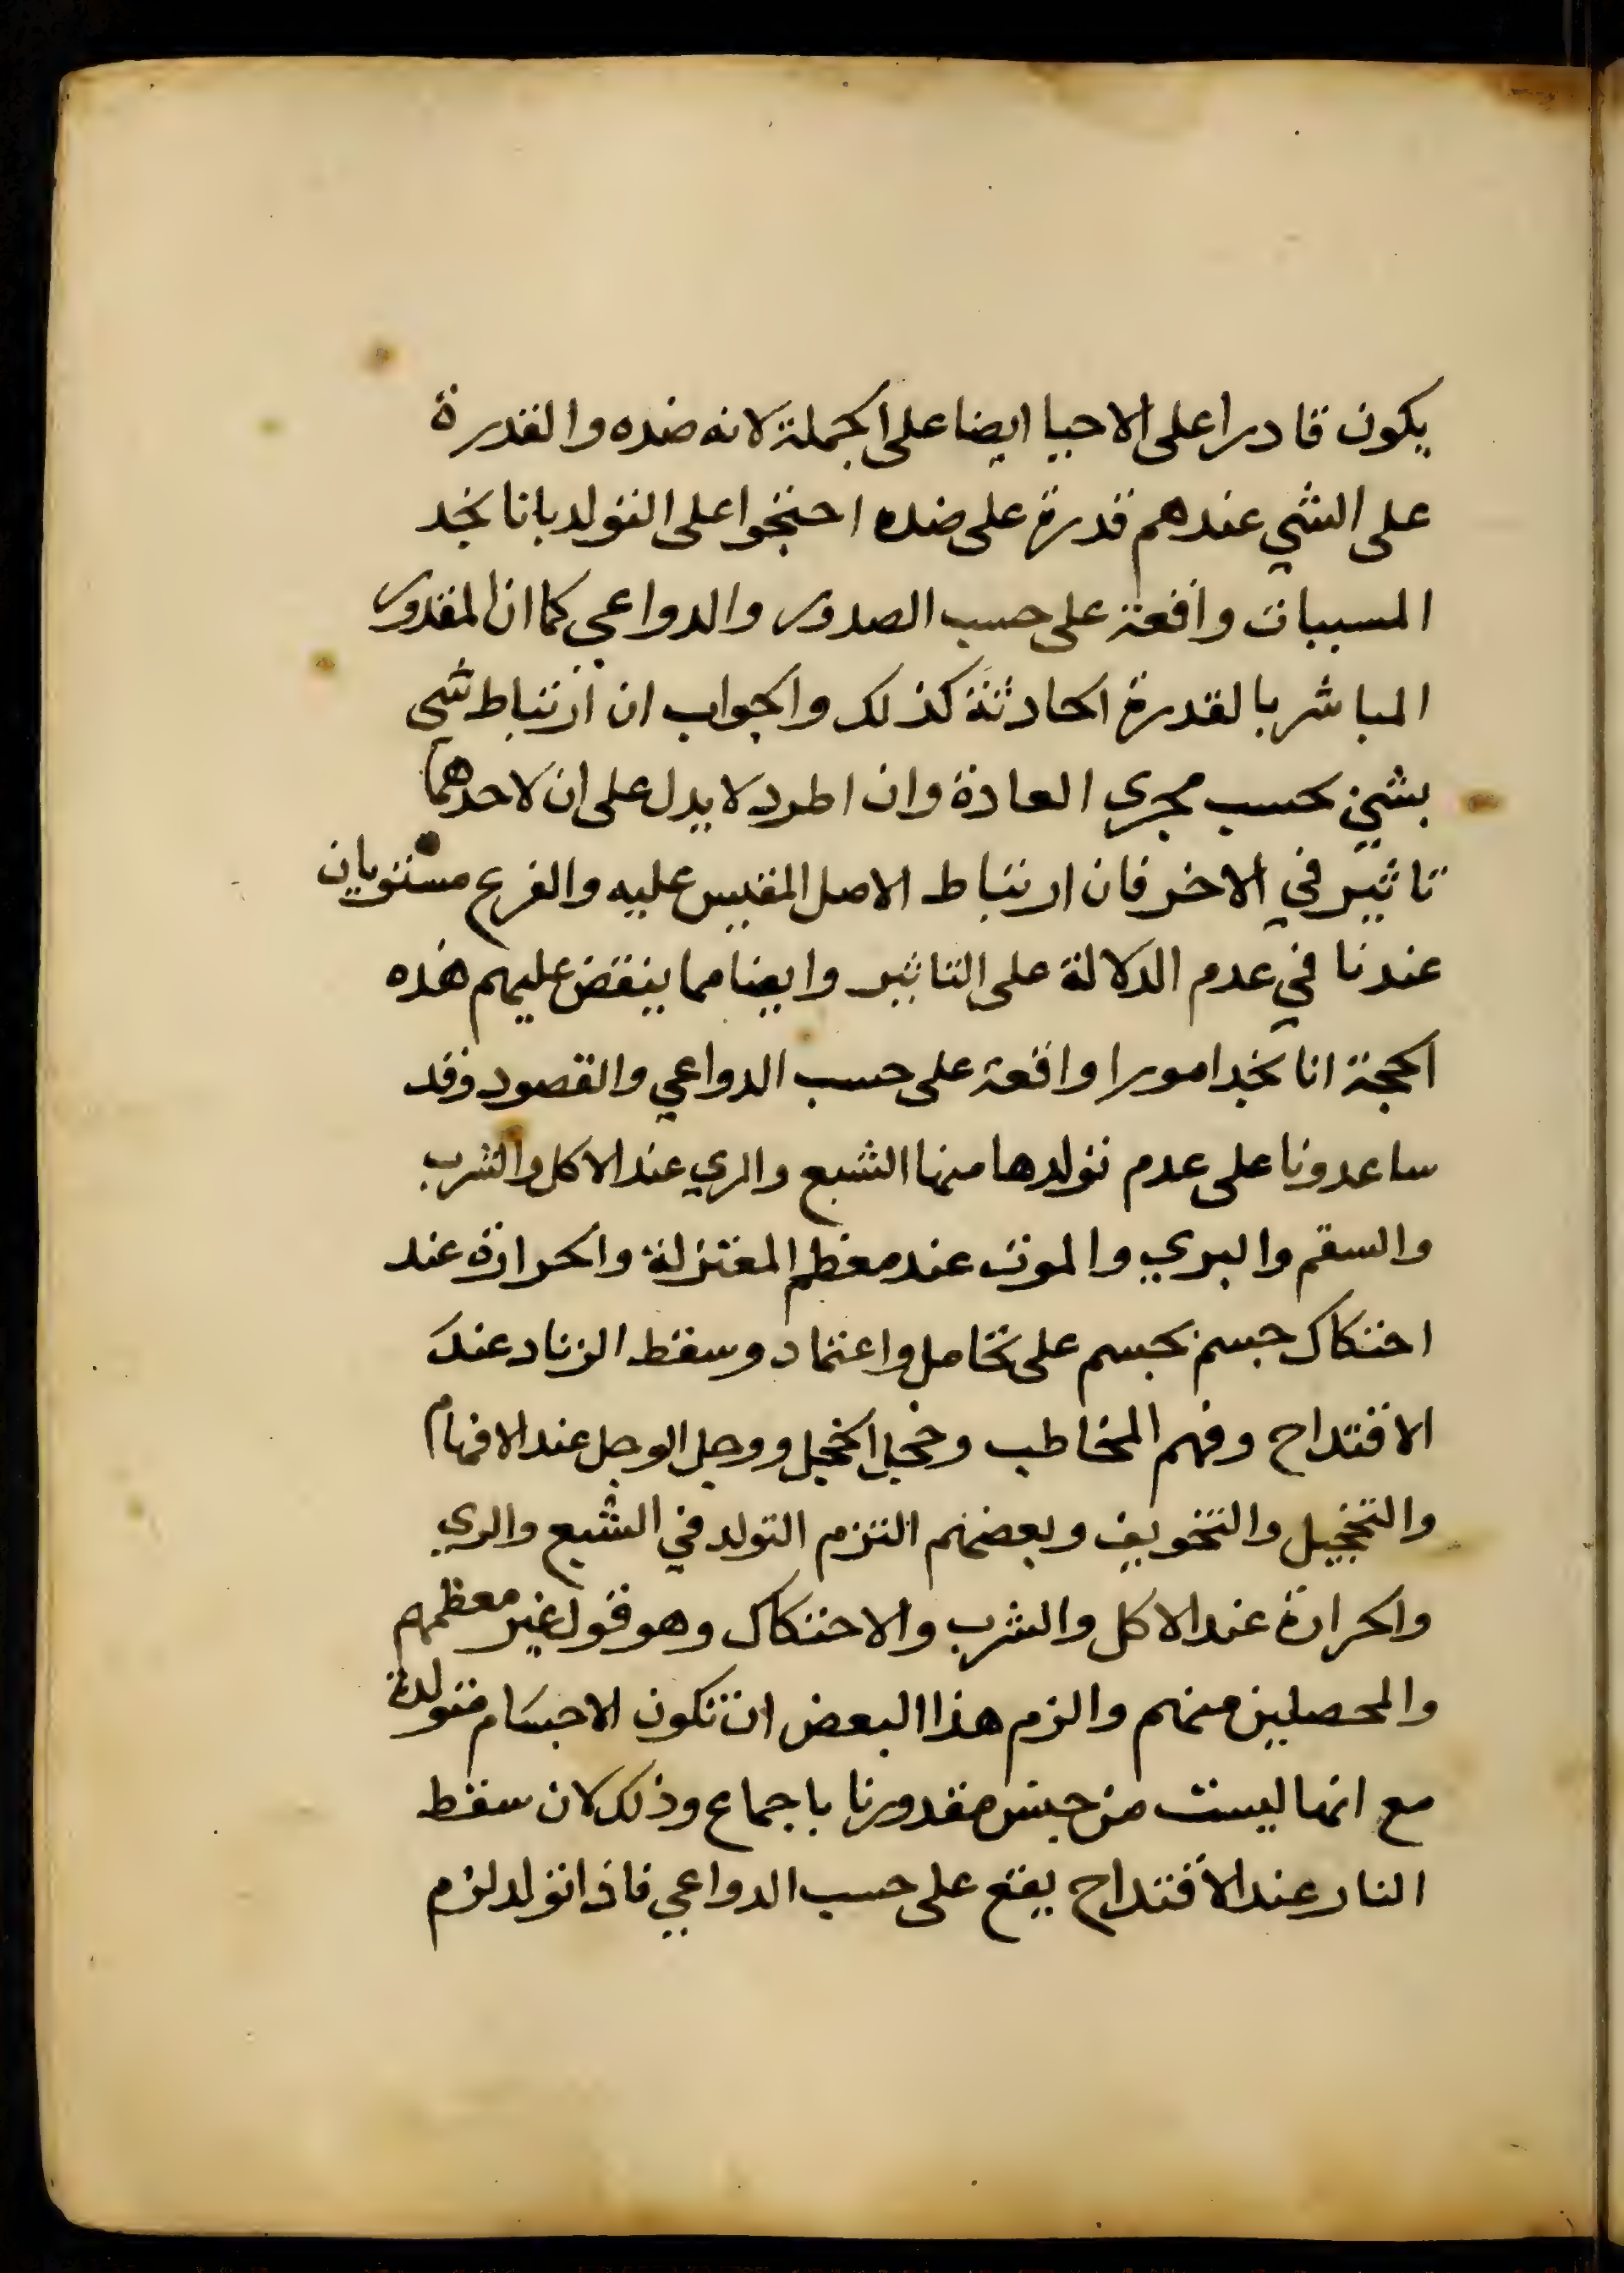 يكون قادرا على الاحيا ايضا على الجملة لانه ضده والقدرة
على الشي عندهم قدرة على ضده احتجوا على التولد بانا نجد
المسببات واقعة على حسب الصدور والدواعي كما ان المقدور
المباشر بالقدرة الحادثة كذلك والجواب ان ارتباط شي
بشي بحسب مجري العادة وان اطرد لا يدل على ان لاحدهما
تاثير في الاخر فان ارتباط الاصل المقيس عليه والفرع مستويان
عندنا في عدم الدلالة على التاثير وايضا مما ينقض عليهم هذه
الحجة انا نجد امورا واقعة على حسب الدواعي والقصود وقد
ساعدونا على عدم تولدها منها الشبع والري عند الاكل والشرب
والسقم والبري والموت عند معظم المعتزلة والحرارة عند
احتكاك جسم بجسم على تحامل واعتماد وسقط الزناد عند
الاقتداح وفهم المخاطب وخجل الخجل ووجل الوجل عند الافهام
والتخجيل والتخويف وبعضهم التزم التولد في الشبع والري
والحرارة عند الاكل والشرب والاحتكاك وهو قول غير معظمهم
والمحصلين منهم والزم هذا البعض ان تكون الاجسام متولدة
مع انها ليست من جنس مقدورنا باجماع وذلك لان سقط
النار عند الاقتداح يقع على حسب الدواعي فاذا تولد لزم